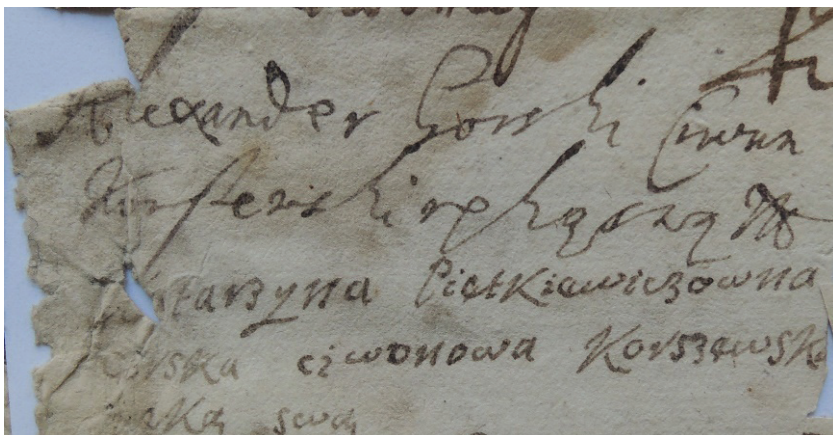 Alexander Gorski Ciwun
ręką swą
Katarzyna Piętkiewiczowna
Gorska ciwonowa Korszewska
ręką swą